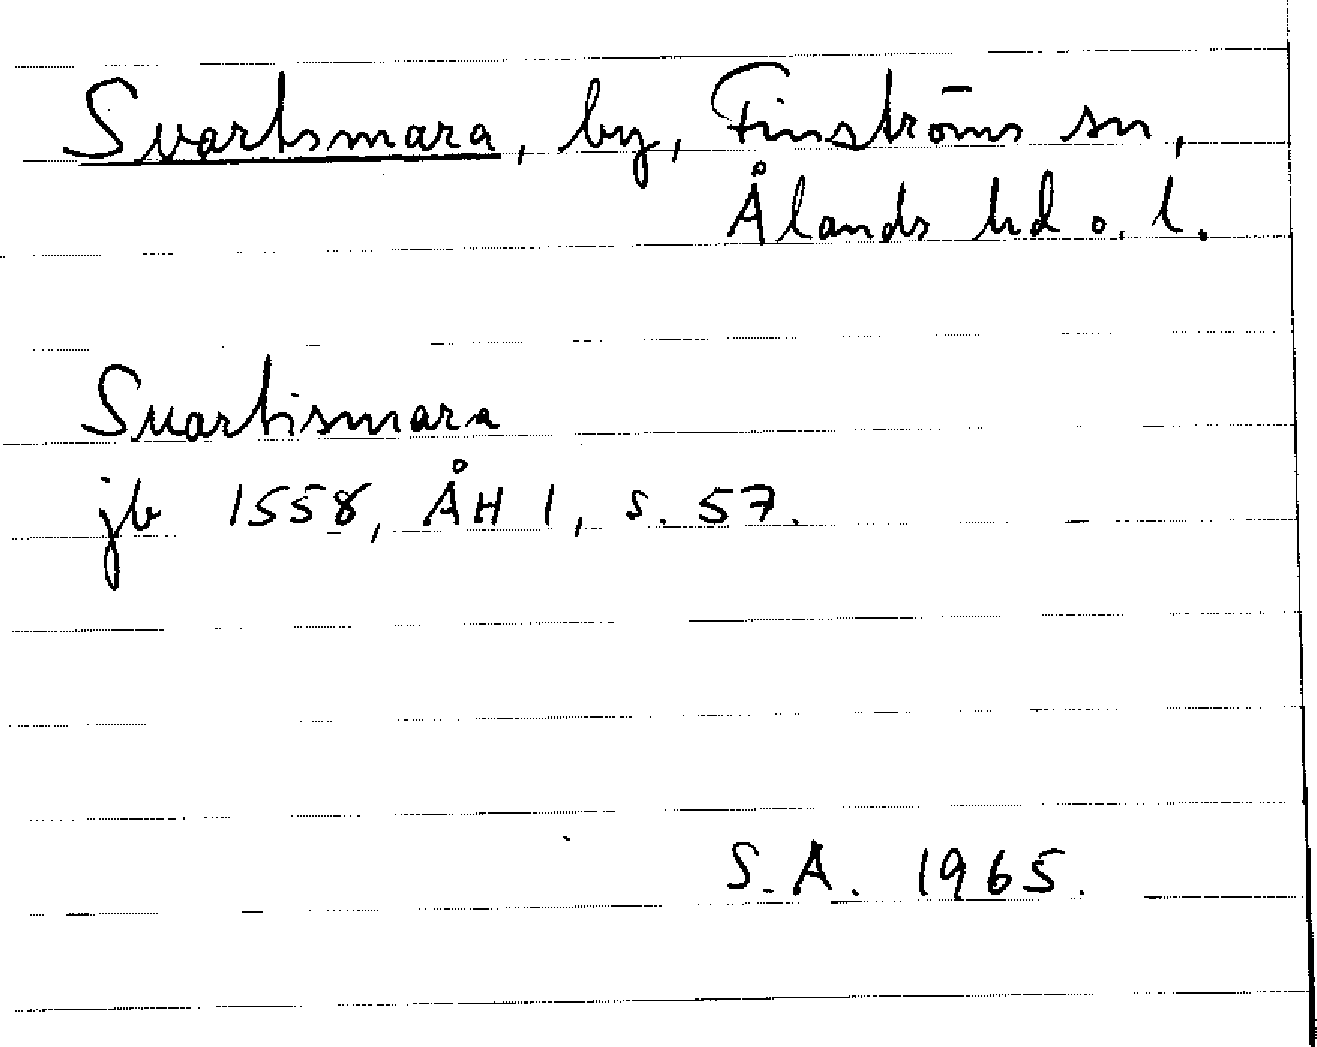 Svartsmara, by, Finströms sn,
Ålands hd o. l.
Suartismara
jb 1558, ÅH 1, s. 57.
S.A. 1965.